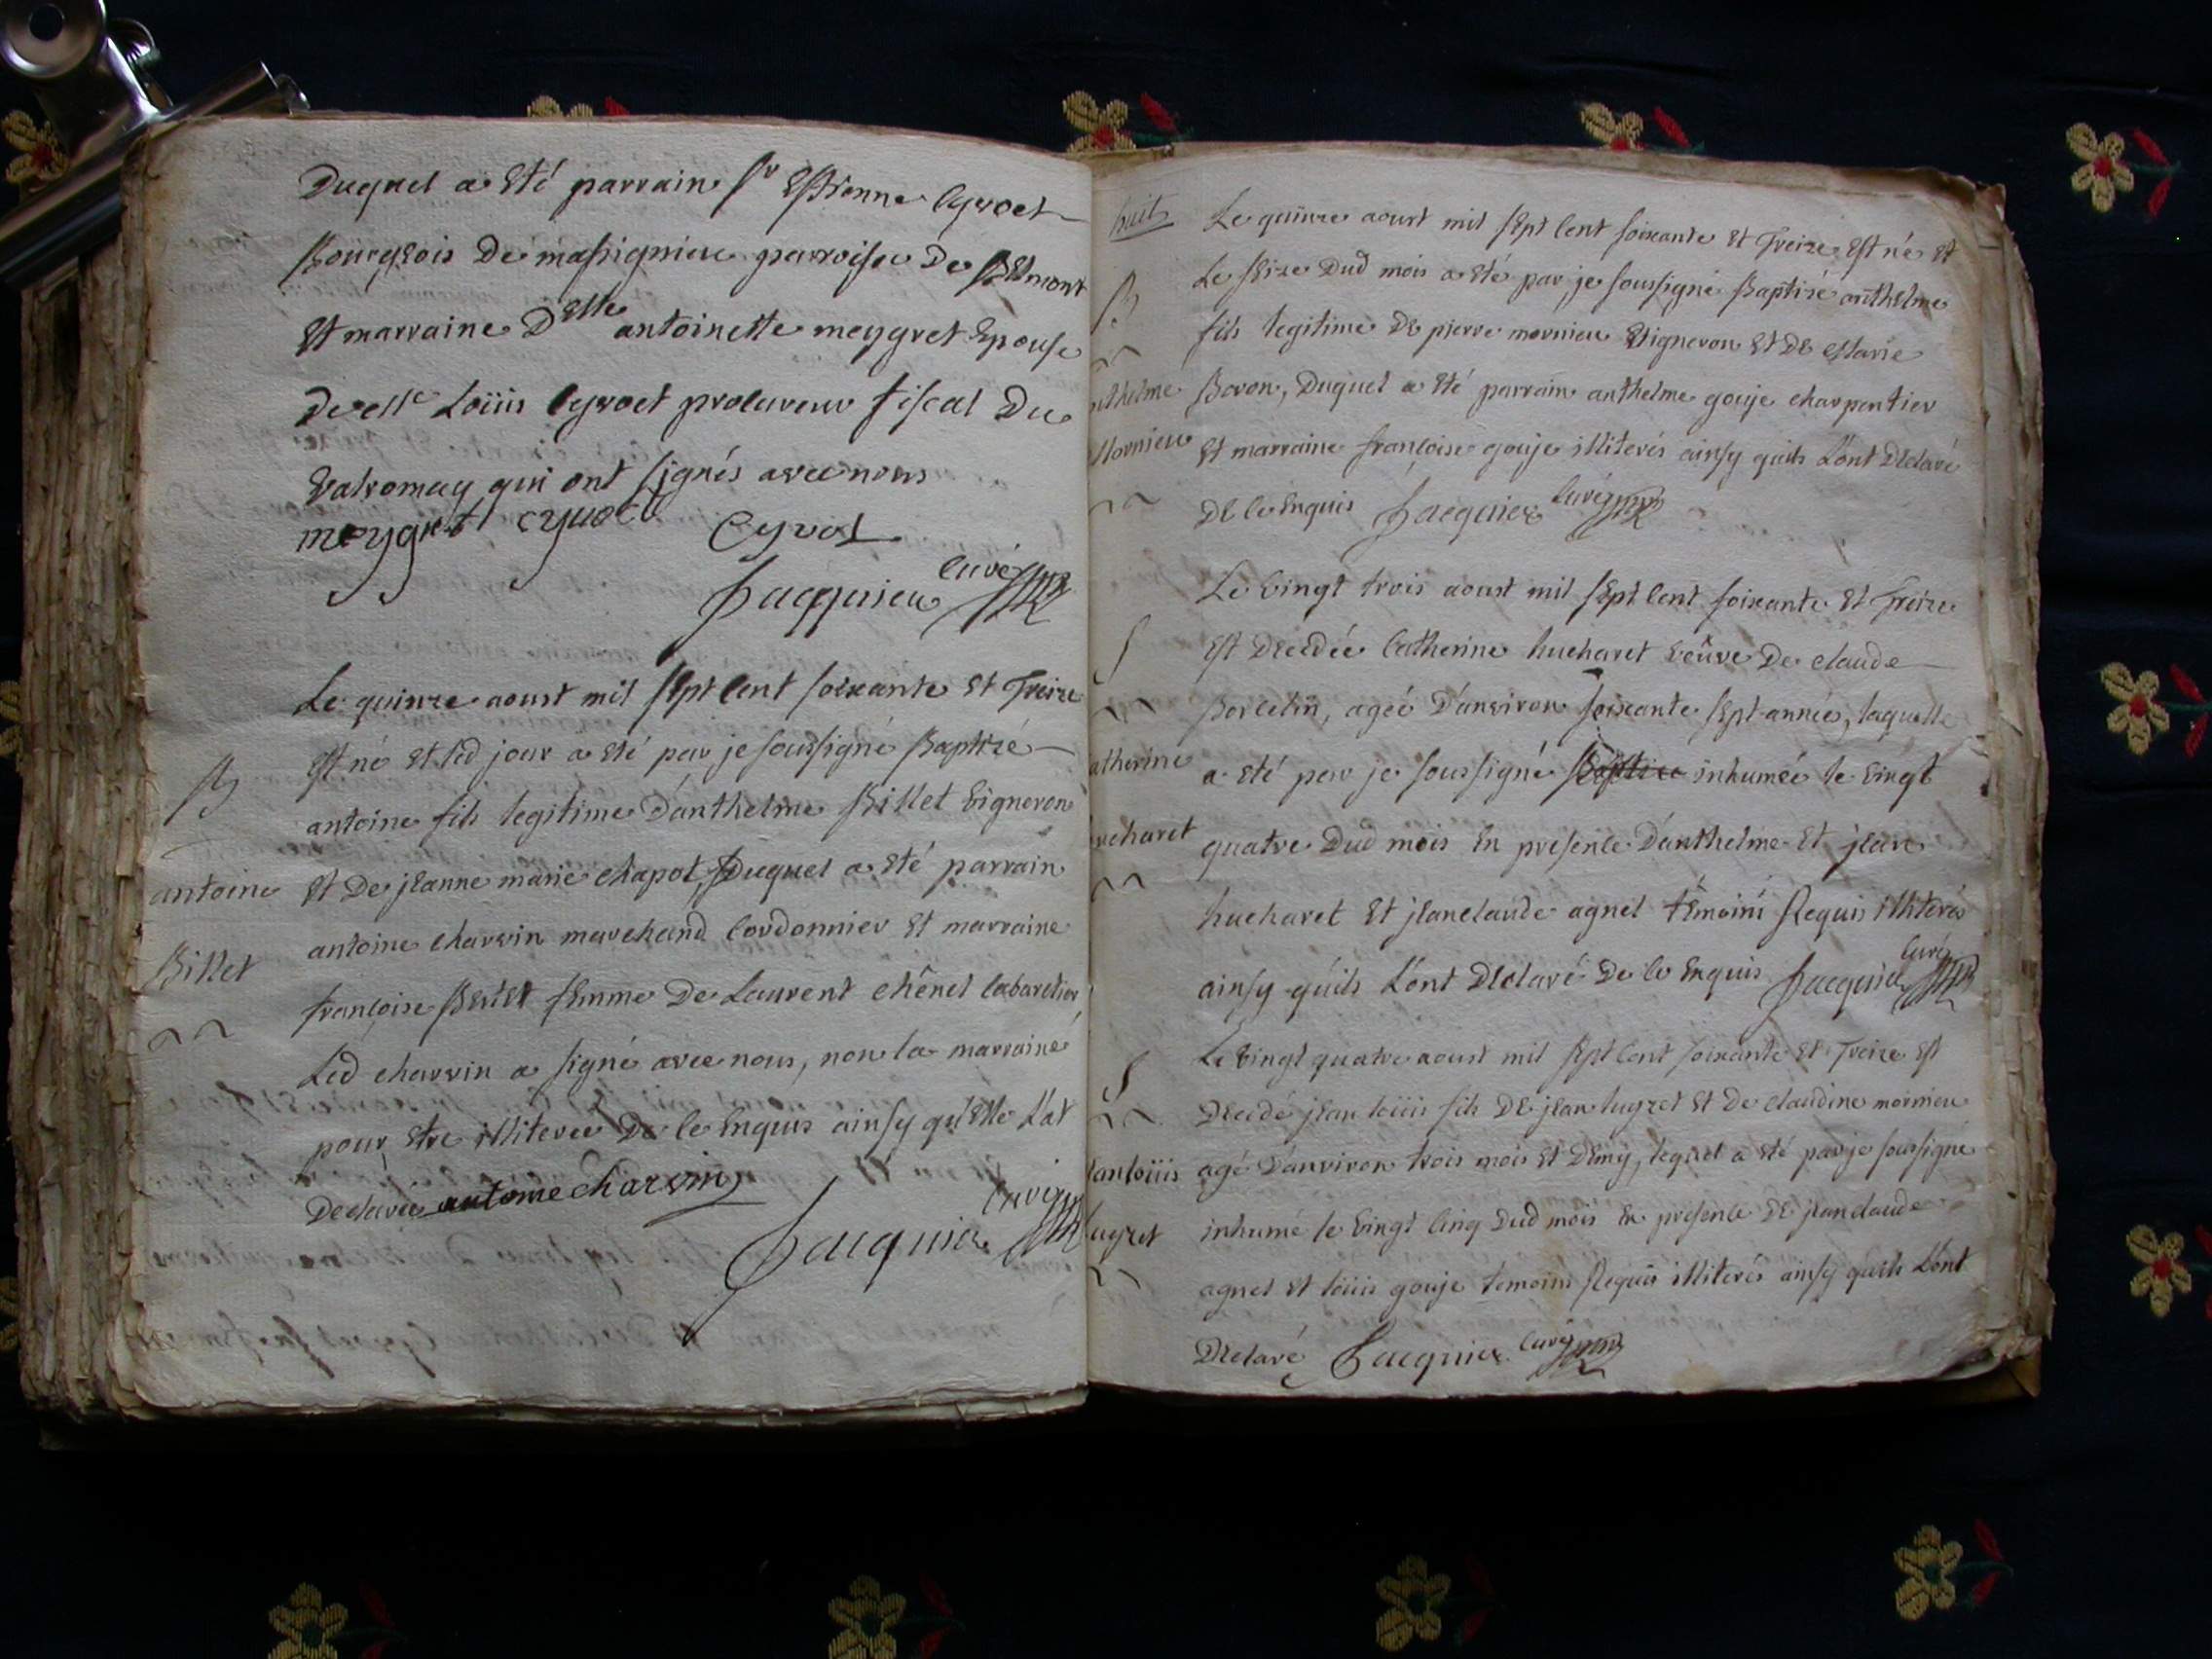 Duquel a Eté parrain Sr Estienne Cyvoct
Bourgeois De massignieu parroisse De Belmont
Et marraine Delle antoinette meygret Epouse
De Mre Loüis Cyvoct procureur fiscal Du
Valromey qui ont signés avec nous
meygret cyvoct Cyvoct
Jacquier Curé
Le quinze aoust mil sept Cent soixante Et Treize
B
Est né Et led jour a Eté par je soussigné Baptizé
antoine fils legitime D'anthelme Billet Vigneron
antoine
Et De jeanne marie chapot, Duquel a Eté parrain
antoine charvin marchand Cordonnier Et marraine
Billet
françoise femme De Laurent chênel Cabaretier
Led charvin a signé avec nous, non la marraine
pour Etre illiterée De Ce Enquis ainsy qu'Elle L'at
Declaré antoine charvin
Jacquier Curé
huit
Le quinze aoust mil sept Cent soixante Et Treize Est né Et
Le seize Dud mois a Eté par je soussigné Baptizé anthelme
B
fils legitime De pierre mornieu Vigneron Et De Marie
nthelme
Boron, Duquel a Eté parrain anthelme gouje charpentier
Mornieu
Et marraine françoise gouje illiterés ainsy quils L'ont Declaré
De Ce Enquis Jacquier Curé
Le Vingt trois aoust mil sept Cent soixante Et Treize
S
Est Decedée Catherine hucharet Veûve De claude
Borcelin, ageé D'anviron soixante sept années, laquelle
atherine
a Eté par je soussigné Baptizé inhumée le Vingt
ucharet
quatre Dud mois En presence D'anthelme Et jean
hucharet Et jeanclaude agnel têmoins Requis illiterés
ainsy qu'ils L'ont Declaré De Ce Enquis Jacquier Curé
Le Vingt quatre aoust mil sept Cent soixante Et Treize Est
S
Decedé jean loüis fils De jean lugret Et De claudine mornieu
anloüis
agé D'anviron trois mois Et Demy, lequel a Eté par je soussigné
ugret
inhumé le Vingt Cinq Dud mois En presence De jeanclaude
agnel Et loüis gouje temoins Requis illiterés ainsy quils L'ont
Declaré Jacquier Curé